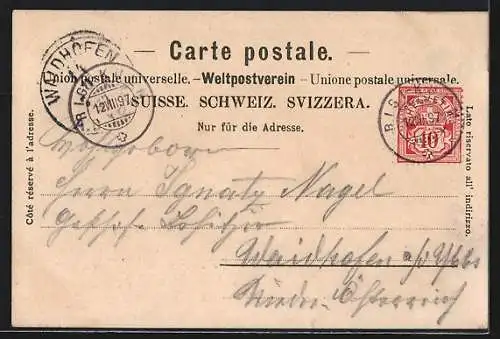 Carte postale.
Union postale universelle. – Weltpostverein – Unione postale universale.
SUISSE. SCHWEIZ. SVIZZERA.
Nur für die Adresse.
Côté réservé à l'adresse.
Lato riservato all' indirizzo.
WAIDHOFEN
12 III 97
10
Herrn Ignatz Nagel
Waidhofen a/ Ybbs
Österreich